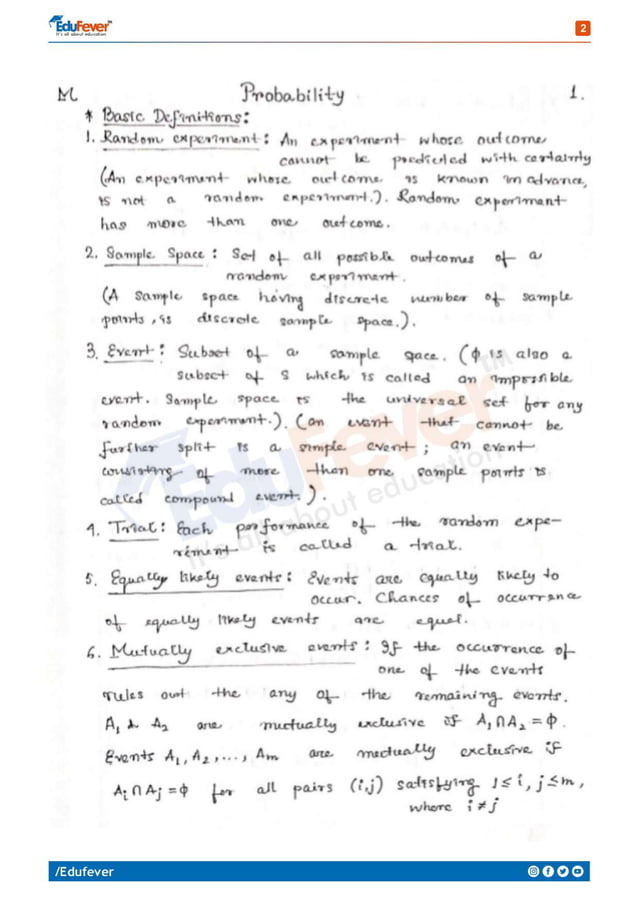 EduFever™
It's all about education
2
M Probability 1.
* Basic Definitions:
1. Random experiment: An experiment whose outcome
cannot be predicted with certainty
(An experiment whose outcome is known in advance,
is not a random experiment.). Random experiment
has more than one outcome.
2. Sample Space: Set of all possible outcomes of a
random experiment.
(A sample space having discrete number of sample
points, is discrete sample space.).
3. Event: Subset of a sample space. (ϕ is also a
subset of S which is called an impossible
event. Sample space is the universal set for any
random experiment.). (an event that cannot be
further split is a simple event; an event
consisting of more than one sample points is
called compound event.).
4. Trial: Each performance of the random expe-
riment is called a trial.
5. Equally likely events: Events are equally likely to
occur. Chances of occurrence
of equally likely events are equal.
6. Mutually exclusive events: If the occurrence of
one of the events
rules out the any of the remaining events.
A₁ & A₂ are mutually exclusive if A₁∩A₂=ϕ.
Events A₁, A₂, ..., Am are mutually exclusive if
Ai∩Aj=ϕ for all pairs (i,j) satisfying 1≤i, j≤m,
where i≠j
EduFever™
It's all about education
/Edufever